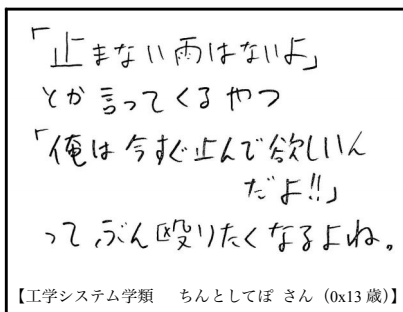 「止まない雨はないよ」
とか言ってくるやつ
「俺は今すぐ止んで欲しいん
だよ!!」
ってぶん殴りたくなるよね。
【工学システム学類　ちんとしてぽ さん（0x13 歳）】